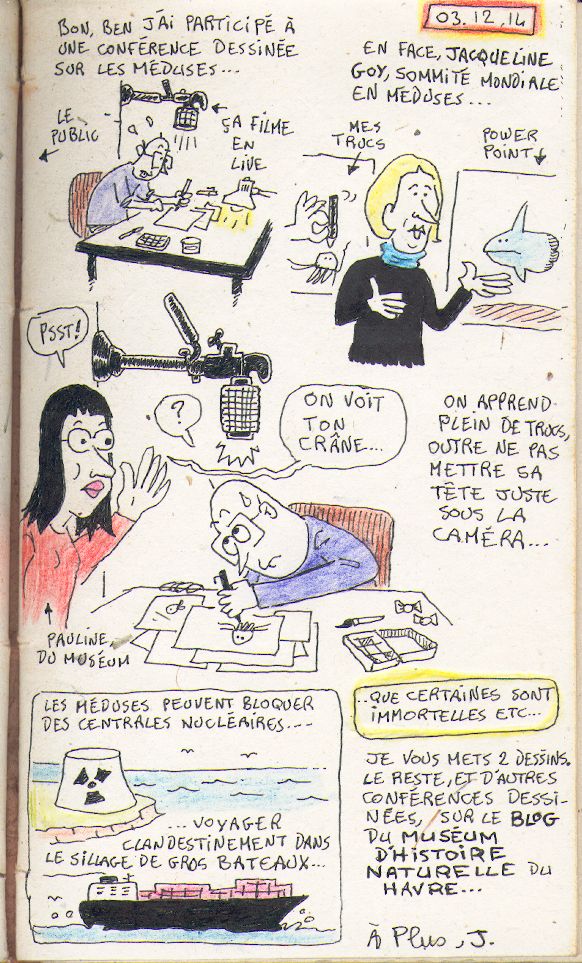 03.12.14
BON, BEN J'AI PARTICIPÉ À
UNE CONFÉRENCE DESSINÉE
SUR LES MÉDUSES...
LE
PUBLIC
ÇA FILME
EN
LIVE
EN FACE, JACQUELINE
GOY, SOMMITÉ MONDIALE
EN MÉDUSES...
MES
TRUCS
POWER
POINT
PSST!
?
ON VOIT
TON
CRÂNE...
ON APPREND
PLEIN DE TRUCS,
OUTRE NE PAS
METTRE SA
TÊTE JUSTE
SOUS LA
CAMÉRA...
PAULINE,
DU MUSÉUM
LES MÉDUSES PEUVENT BLOQUER
DES CENTRALES NUCLÉAIRES...
...VOYAGER
CLANDESTINEMENT DANS
LE SILLAGE DE GROS BATEAUX...
..QUE CERTAINES SONT
IMMORTELLES ETC...
JE VOUS METS 2 DESSINS.
LE RESTE, ET D'AUTRES
CONFÉRENCES DESSI-
NÉES, SUR LE BLOG
DU MUSÉUM
D'HISTOIRE
NATURELLE DU
HAVRE...
À Plus, J.